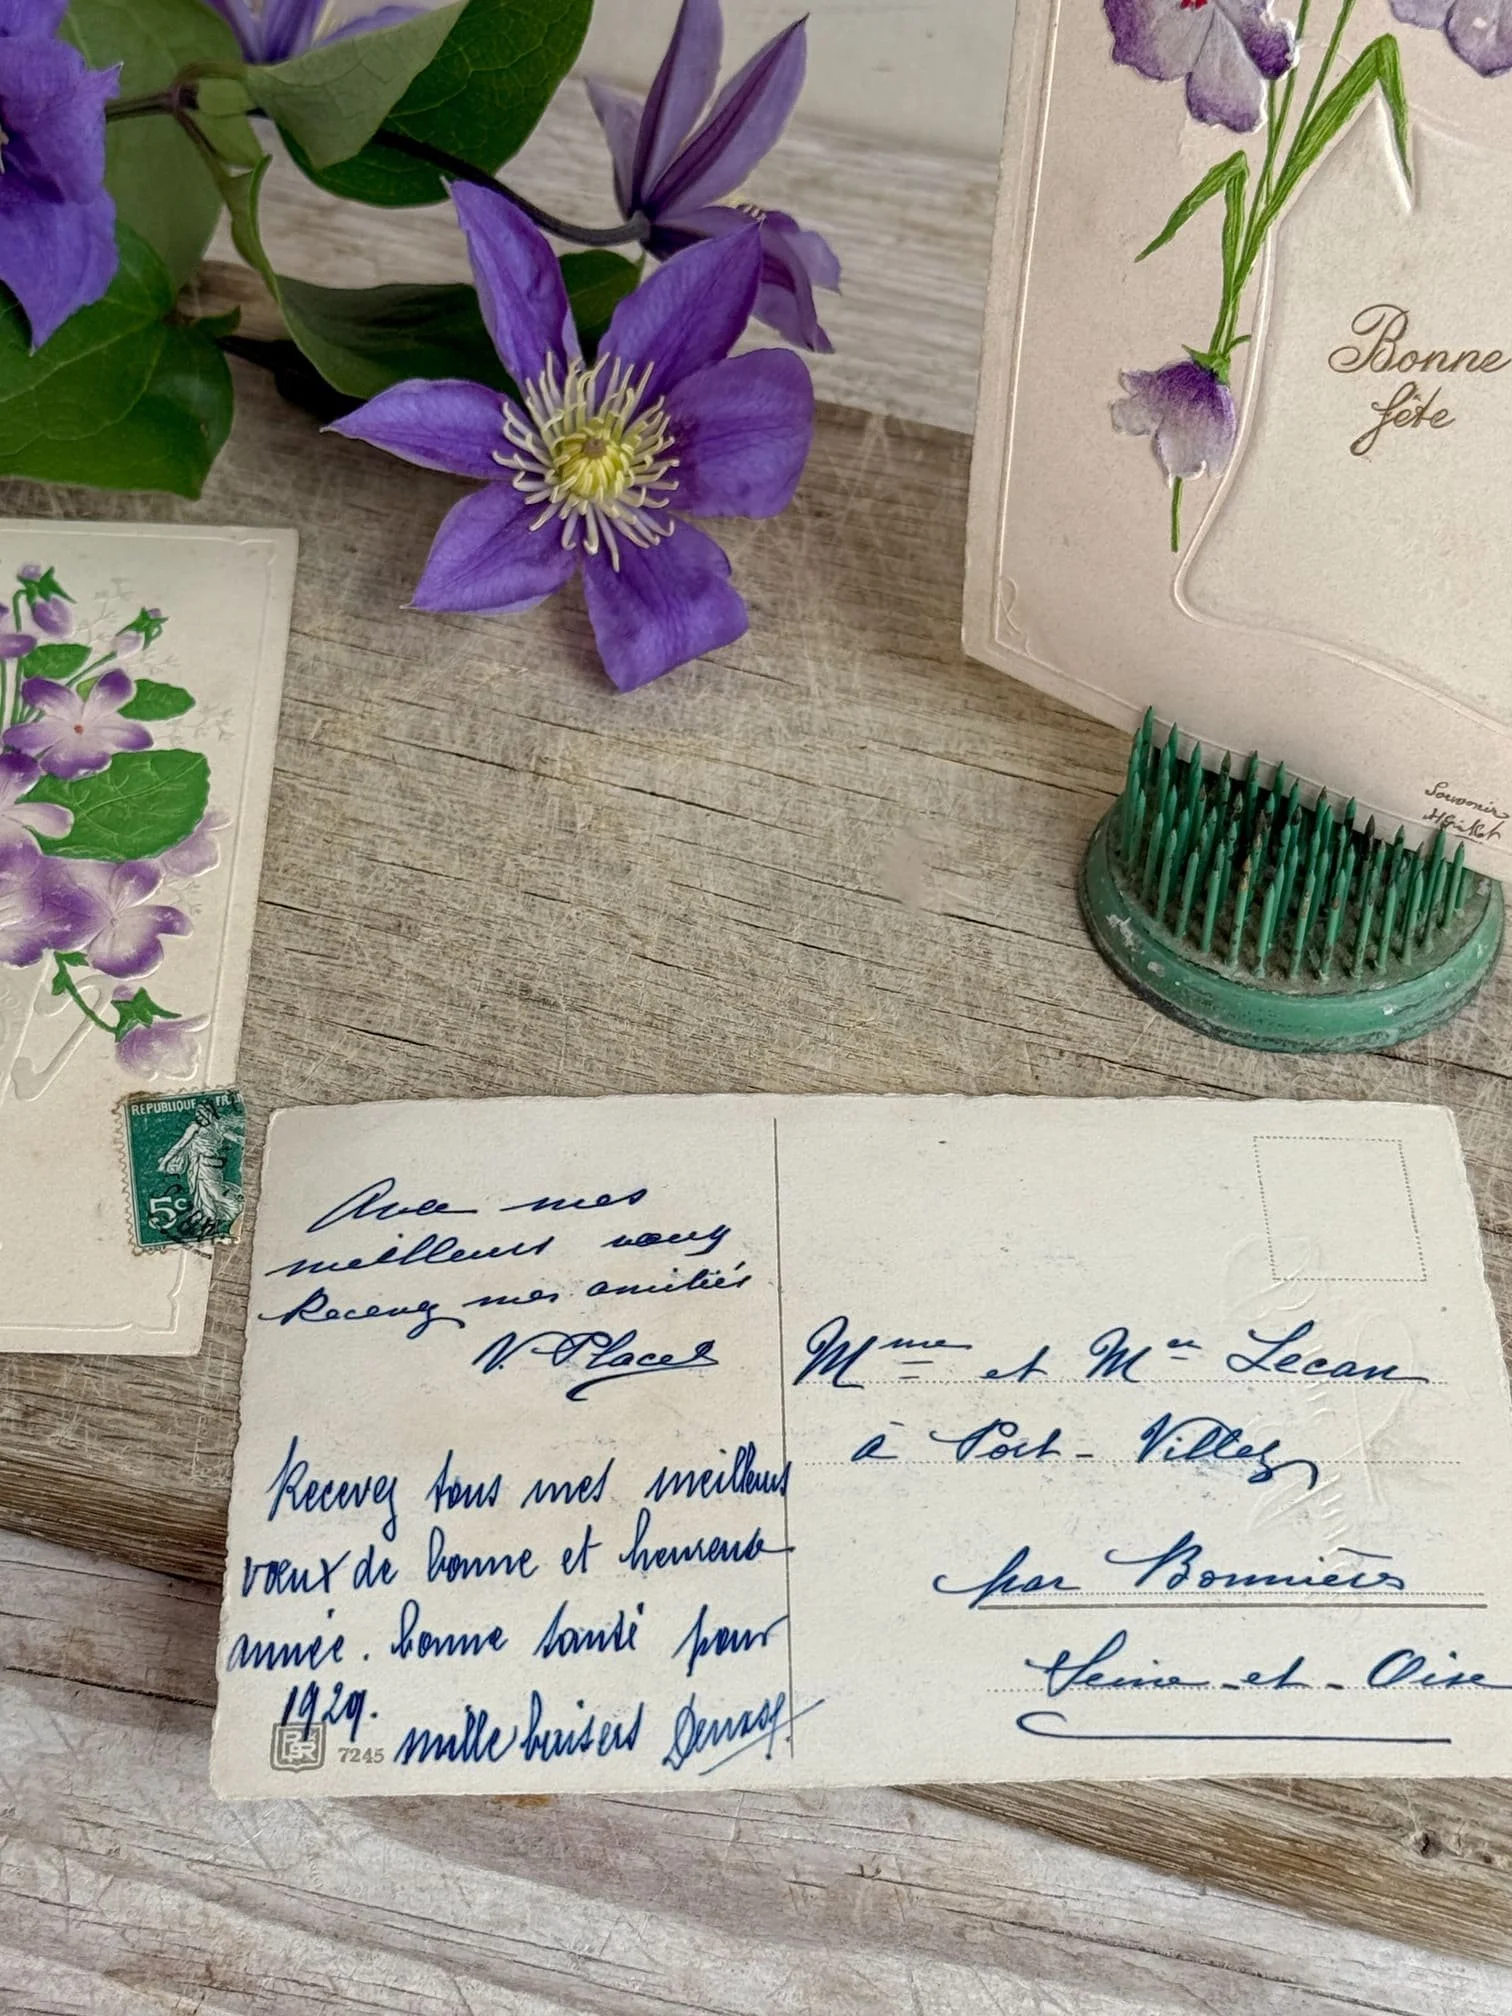 Bonne
fête
Souvenir
REPUBLIQUE FR
5c
Avec mes
meilleurs vœux
Recevez mes amitiés
V. Placet
Recevez tous mes meilleurs
vœux de bonne et heureuse
année. bonne santé pour
1929.
7245 mille baisers
Mme et Mr Lecan
à Port-Villez
par Bonnières
Seine-et-Oise